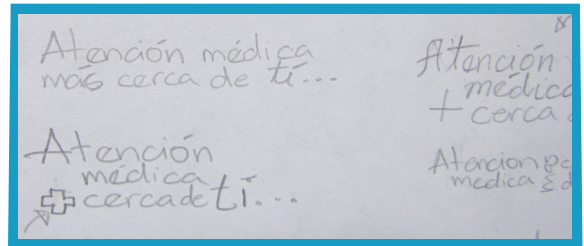 Atención médica
más cerca de tí...
Atención
médica
cerca de tí...
Atención
médica
+ cerca
Atencion
medica